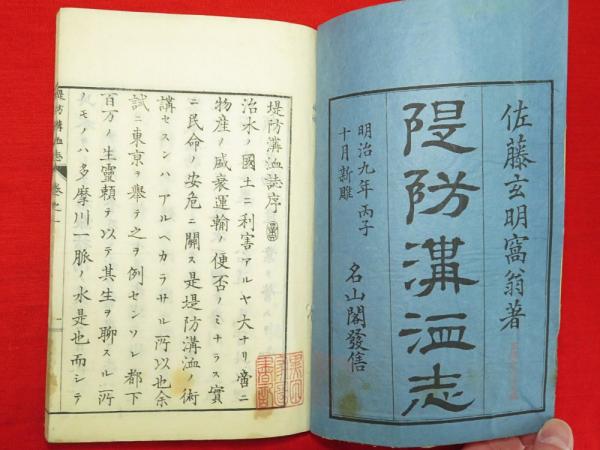 佐藤玄明窩翁著
隄防溝洫志
明治九年丙子
十月新雕
名山閣發售
堤防溝洫誌序
治水ノ國土ニ利害アルヤ大ナリ啻ニ
物産ノ盛衰運輸ノ便否ノミナラス實
ニ民命ノ安危ニ關ス是堤防溝洫ノ術
講セスンハアルヘカラサル所以也余
試ニ東京ヲ舉テ之ヲ例センソレ都下
百万ノ生靈頼テ以テ其生ヲ聊スル所
ノモノハ多摩川一脈ノ水是也而シテ
堤防溝洫志
卷之一
一